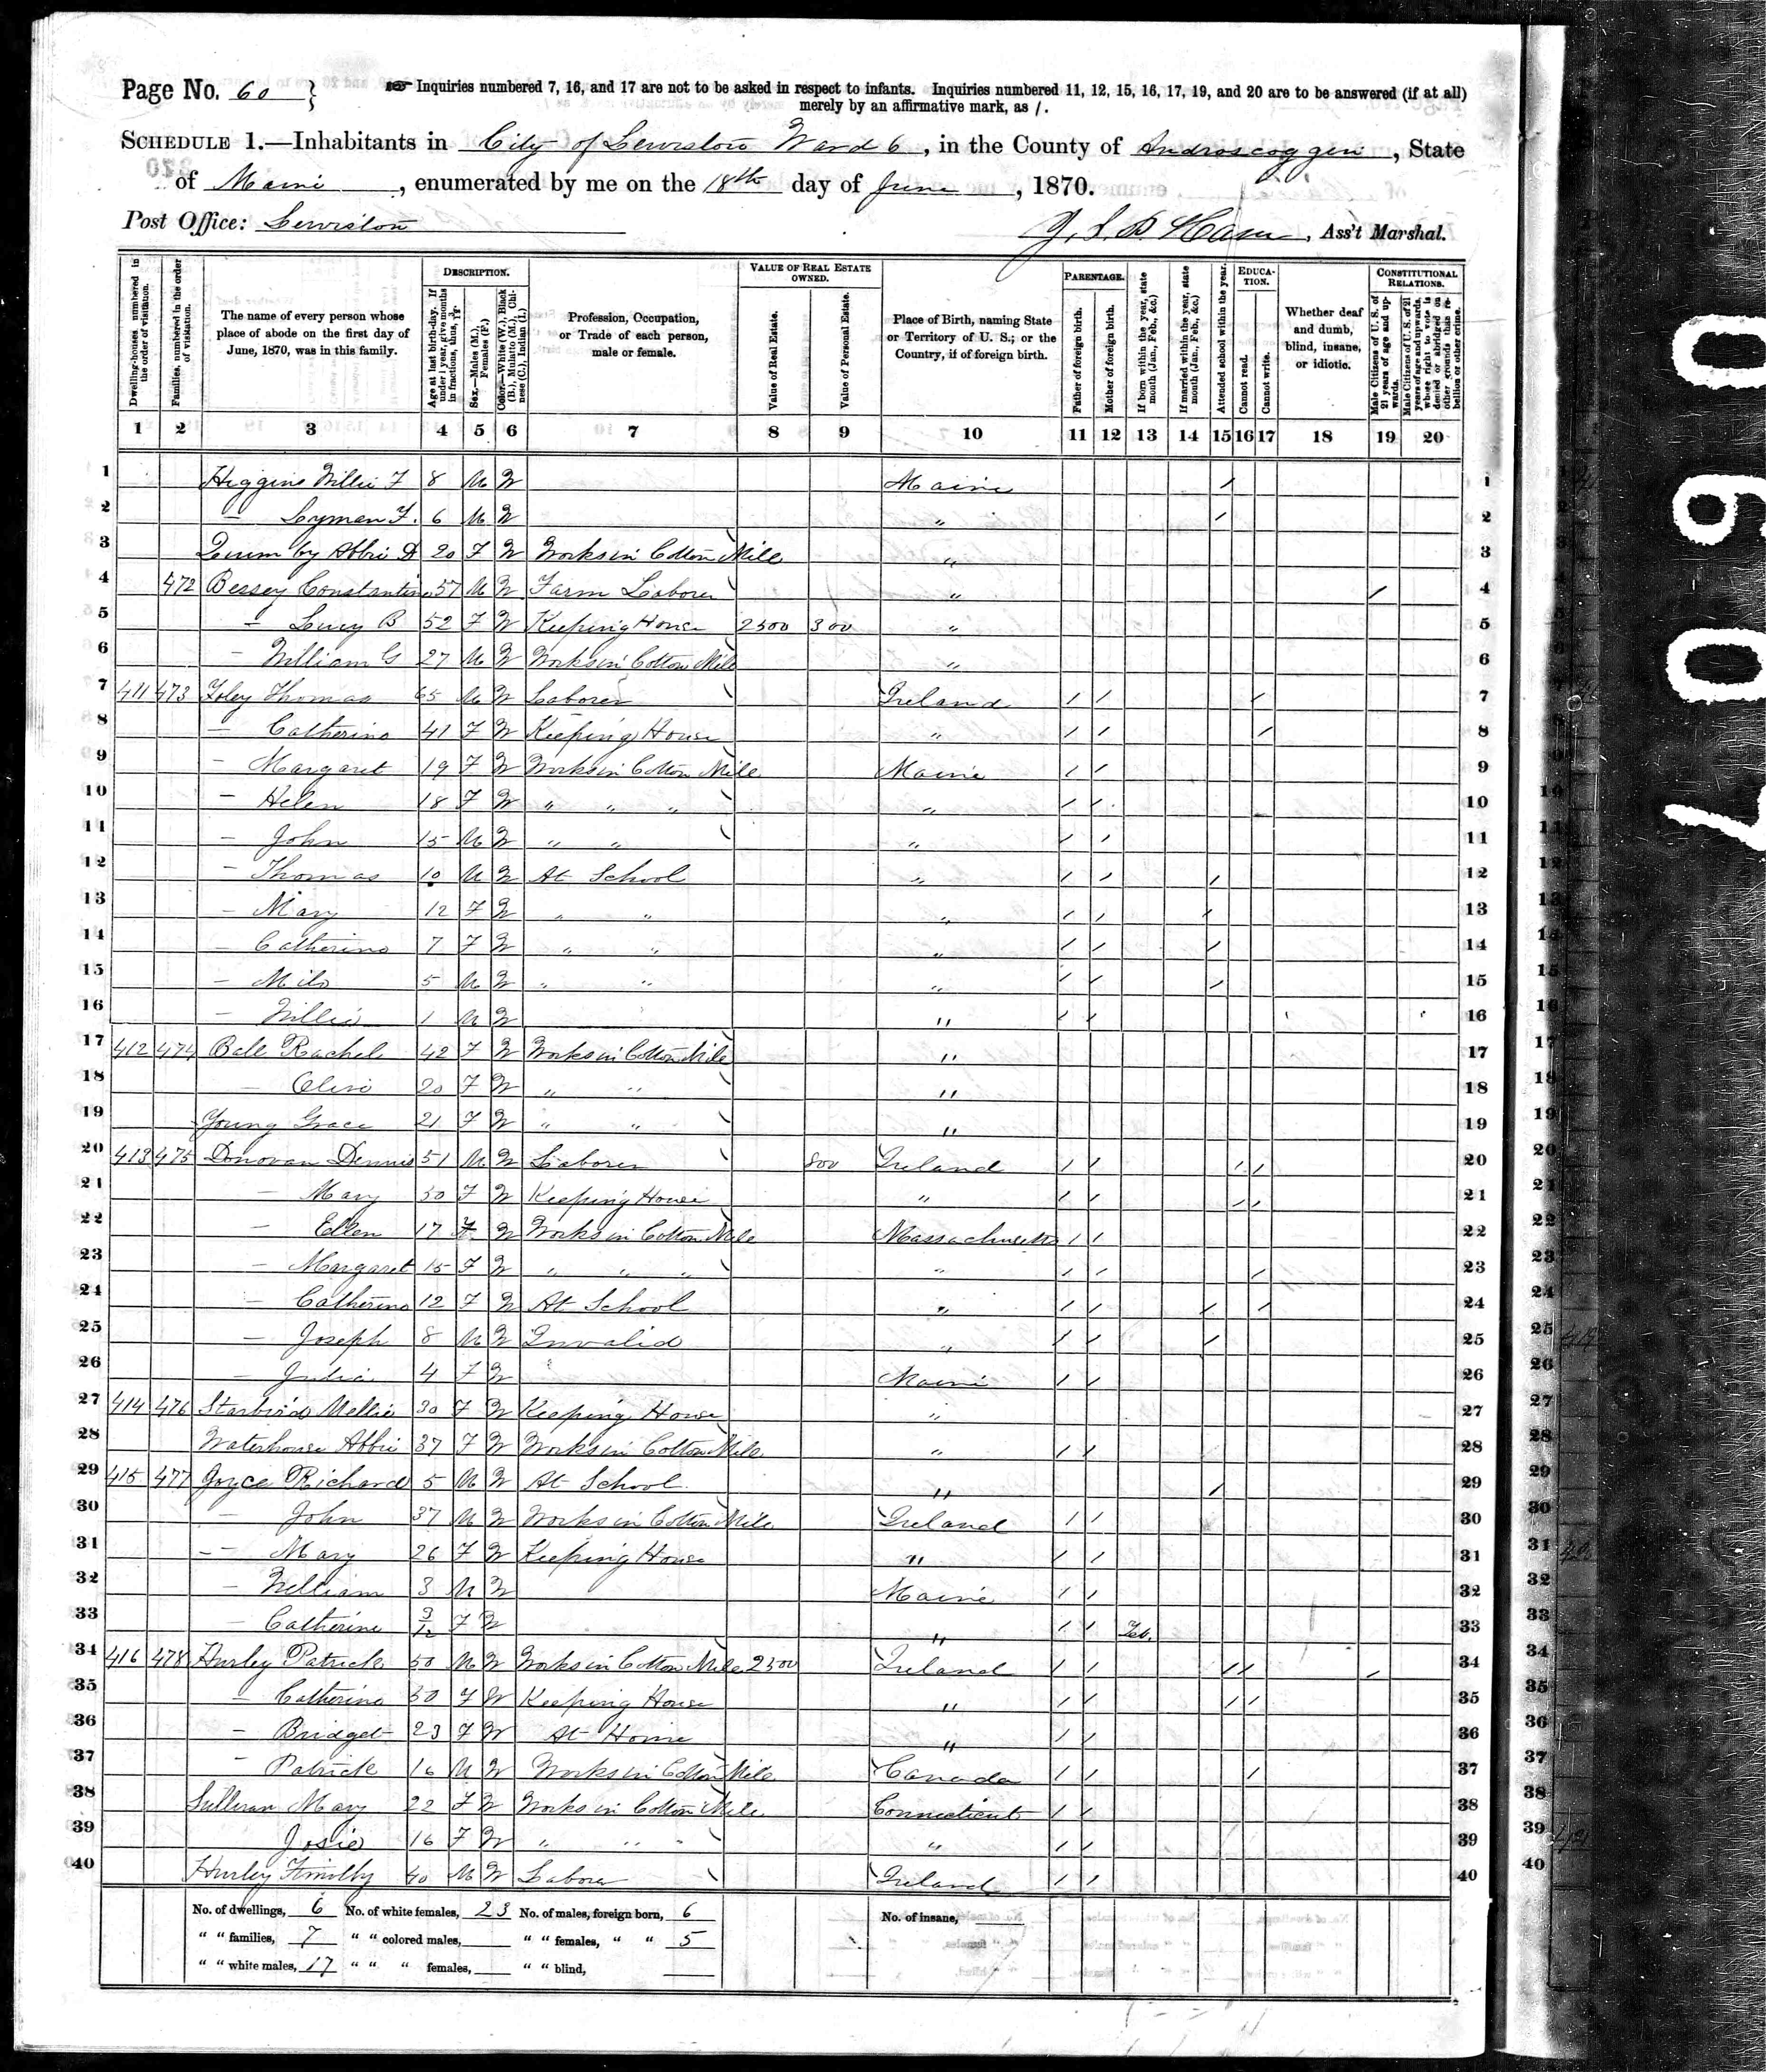 Page No. 60 }
Inquiries numbered 7, 16, and 17 are not to be asked in respect to infants. Inquiries numbered 11, 12, 15, 16, 17, 19, and 20 are to be answered (if at all)
merely by an affirmative mark, as /.
SCHEDULE 1.—Inhabitants in City of Lewiston Ward 6, in the County of Androscoggin, State
of Maine, enumerated by me on the 18th day of June, 1870.
Post Office: Lewiston
Ass't Marshal.
Dwelling-houses, numbered in the order of visitation.
Families, numbered in the order of visitation.
The name of every person whose place of abode on the first day of June, 1870, was in this family.
DESCRIPTION.
Age at last birth-day. If under 1 year, give months in fractions, thus, 3/12.
Sex.—Males (M.), Females (F.)
Color.—White (W.), Black (B.), Mulatto (M.), Chinese (C.), Indian (I.)
Profession, Occupation, or Trade of each person, male or female.
VALUE OF REAL ESTATE OWNED.
Value of Real Estate.
Value of Personal Estate.
Place of Birth, naming State or Territory of U. S.; or the Country, if of foreign birth.
PARENTAGE.
Father of foreign birth.
Mother of foreign birth.
If born within the year, state month (Jan., Feb., &c.)
If married within the year, state month (Jan., Feb., &c.)
Attended school within the year.
EDUCATION.
Cannot read.
Cannot write.
Whether deaf and dumb, blind, insane, or idiotic.
CONSTITUTIONAL RELATIONS.
Male Citizens of U. S. of 21 years of age and upwards.
Male Citizens of U. S. of 21 years of age and upwards, whose right to vote is denied or abridged on other grounds than rebellion or other crime.
1 2 3 4 5 6 7 8 9 10 11 12 13 14 15 16 17 18 19 20
1 Higgins Willie F 8 M W Maine / 1
2 — Lyman F. 6 M W " / 2
3 Quimby Abbie A 20 F W Works in Cotton Mill " 3
4 472 Bessey Constantine 57 M W Farm Laborer " / 4
5 — Lucy B 52 F W Keeping House 2500 300 " 5
6 — William G 27 M W Works in Cotton Mill " 6
7 411 473 Foley Thomas 65 M W Laborer Ireland / / / 7
8 — Catherine 41 F W Keeping House " / / / 8
9 — Margaret 19 F W Works in Cotton Mill Maine / / 9
10 — Helen 18 F W " " " " / / 10
11 — John 15 M W " " " / / 11
12 — Thomas 10 M W At School " / / / 12
13 — Mary 12 F W " " " / / / 13
14 — Catherine 7 F W " " " / / / 14
15 — Milo 5 M W " " " / / / 15
16 — Willie 1 M W " / / 16
17 412 474 Bell Rachel 42 F W Works in Cotton Mill " 17
18 — 20 F W " " " 18
19 Young Grace 21 F W " " " 19
20 413 475 Donovan Dennis 51 M W Laborer 800 Ireland / / / / 20
21 — Mary 50 F W Keeping House " / / / / 21
22 — Ellen 17 F W Works in Cotton Mill Massachusetts / / 22
23 — Margaret 15 F W " " " " / / / 23
24 — Catherine 12 F W At School " / / / / 24
25 — Joseph 8 M W Invalid " / / / 25
26 — Julia 4 F W Maine / / 26
27 414 476 Starbird Mellie 30 F W Keeping House " 27
28 Waterhouse Abbie 37 F W Works in Cotton Mill " / / 28
29 415 477 Joyce Richard 5 M W At School " / 29
30 — John 37 M W Works in Cotton Mill Ireland / / 30
31 — Mary 26 F W Keeping House " / / 31
32 — William 3 M W Maine / / 32
33 — Catherine 3/12 F W " / / Feb. 33
34 416 478 Hurley Patrick 50 M W Works in Cotton Mill 2500 Ireland / / / / / 34
35 — Catherine 50 F W Keeping House " / / / / 35
36 — Bridget 23 F W At Home " / / 36
37 — Patrick 16 M W Works in Cotton Mill Canada / / / 37
38 Sullivan Mary 22 F W Works in Cotton Mill Connecticut / / 38
39 Josie 16 F W " " " " / / 39
40 Hurley Timothy 40 M W Laborer Ireland / / 40
No. of dwellings, 6 No. of white females, 23 No. of males, foreign born, 6 No. of insane,
" " families, 7 " " colored males, " " females, " " 5
" " white males, 17 " " " females, " " blind,
0900 7